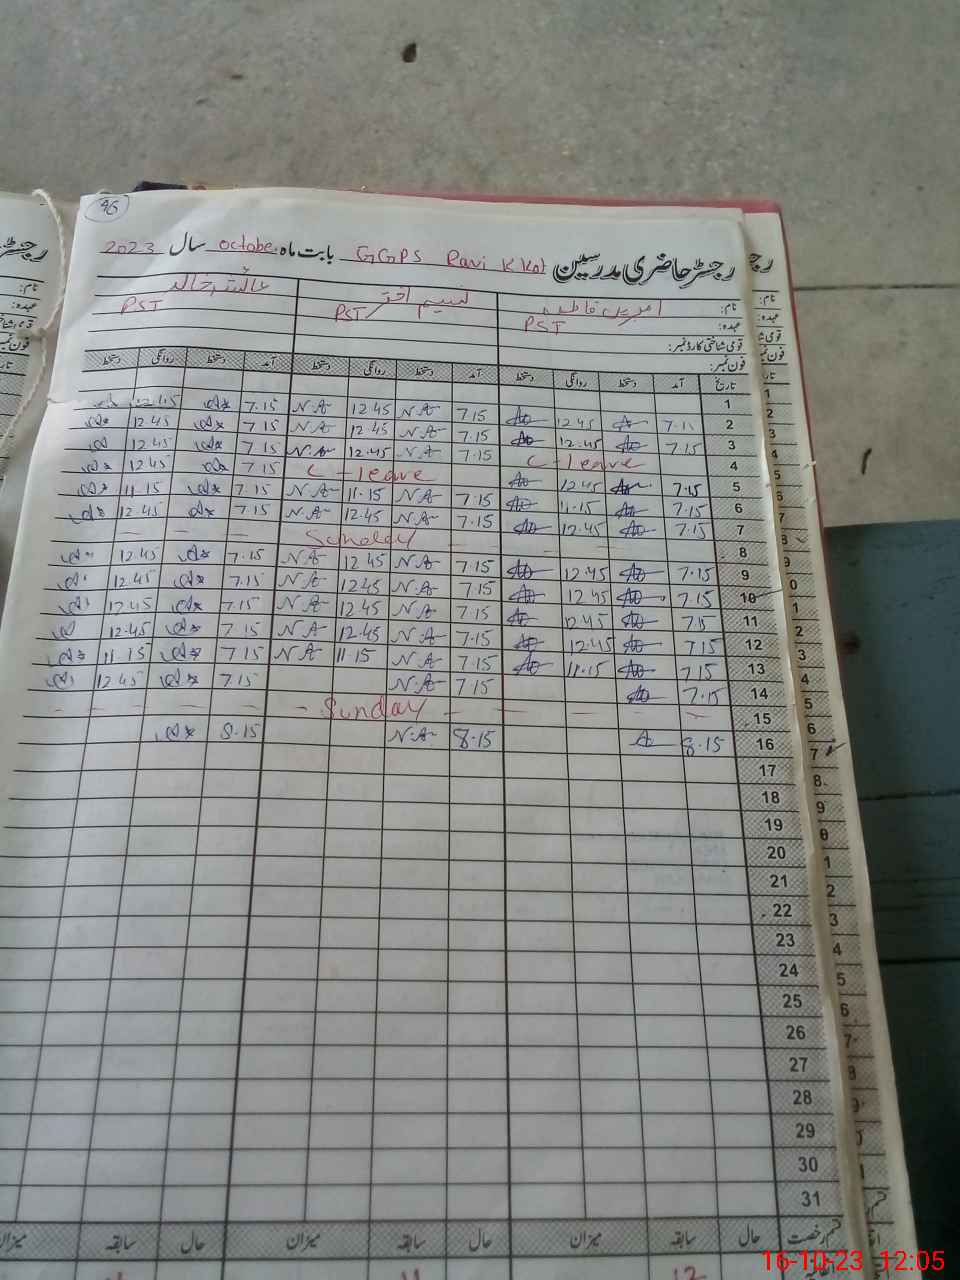 46
رجسٹر حاضری مدرسین GGPS Ravi K Kot بابت ماہ October سال 2023
نام: امبرین فاطمہ نسیم اختر عائشہ خالد
عہدہ: PST PST PST
قومی شناختی کارڈ نمبر:
فون نمبر:
تاریخ آمد دستخط روانگی دستخط آمد دستخط روانگی دستخط آمد دستخط روانگی دستخط
1
2 7.15 12.45 7.15 N.A 12.45 N.A 7.15 12.45
3 7.15 12.45 7.15 N.A 12.45 N.A 7.15 12.45
4 C-leave 7.15 N.A 12.45 N.A 7.15 12.45
5 7.15 12.45 C-leave 7.15 12.45
6 7.15 11.15 7.15 N.A 11.15 N.A 7.15 11.15
7 7.15 12.45 7.15 N.A 12.45 N.A 7.15 12.45
8 Sunday
9 7.15 12.45 7.15 N.A 12.45 N.A 7.15 12.45
10 7.15 12.45 7.15 N.A 12.45 N.A 7.15 12.45
11 7.15 12.45 7.15 N.A 12.45 N.A 7.15 12.45
12 7.15 12.45 7.15 N.A 12.45 N.A 7.15 12.45
13 7.15 11.15 7.15 N.A 11.15 N.A 7.15 11.15
14 7.15 7.15 N.A 7.15 12.45
15 Sunday
16 8.15 8.15 N.A 8.15
17
18
19
20
21
22
23
24
25
26
27
28
29
30
31
قسم رخصت حال سابقہ میزان حال سابقہ میزان حال سابقہ میزان
16-10-23 12:05